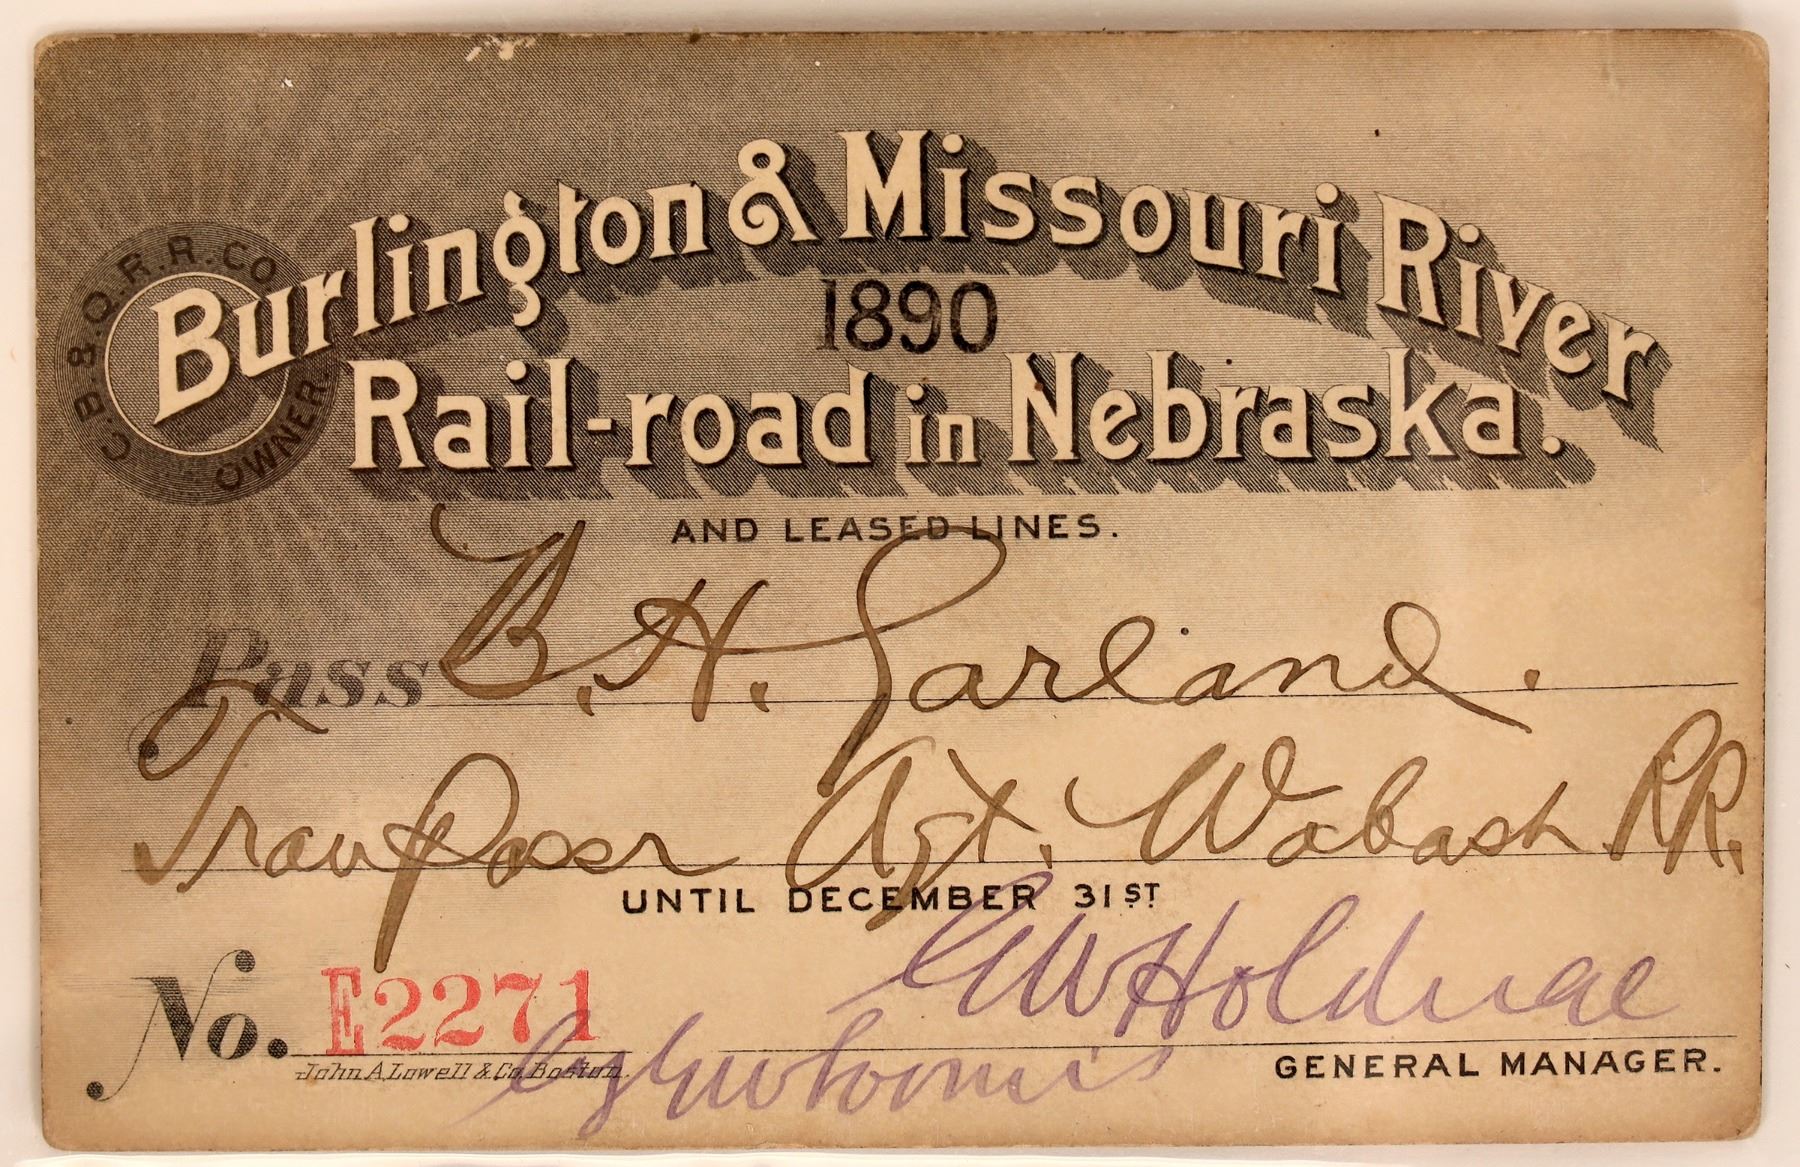 C. B. & Q. R. R. CO
OWNER
Burlington & Missouri River
1890
Rail-road in Nebraska.
AND LEASED LINES.
Pass B. H. Garland.
Trav Passr Agt. Wabash RR.
UNTIL DECEMBER 31ST
No. E2271
GW Holdrege
GENERAL MANAGER.
John A. Lowell & Co. Boston.
Loomis